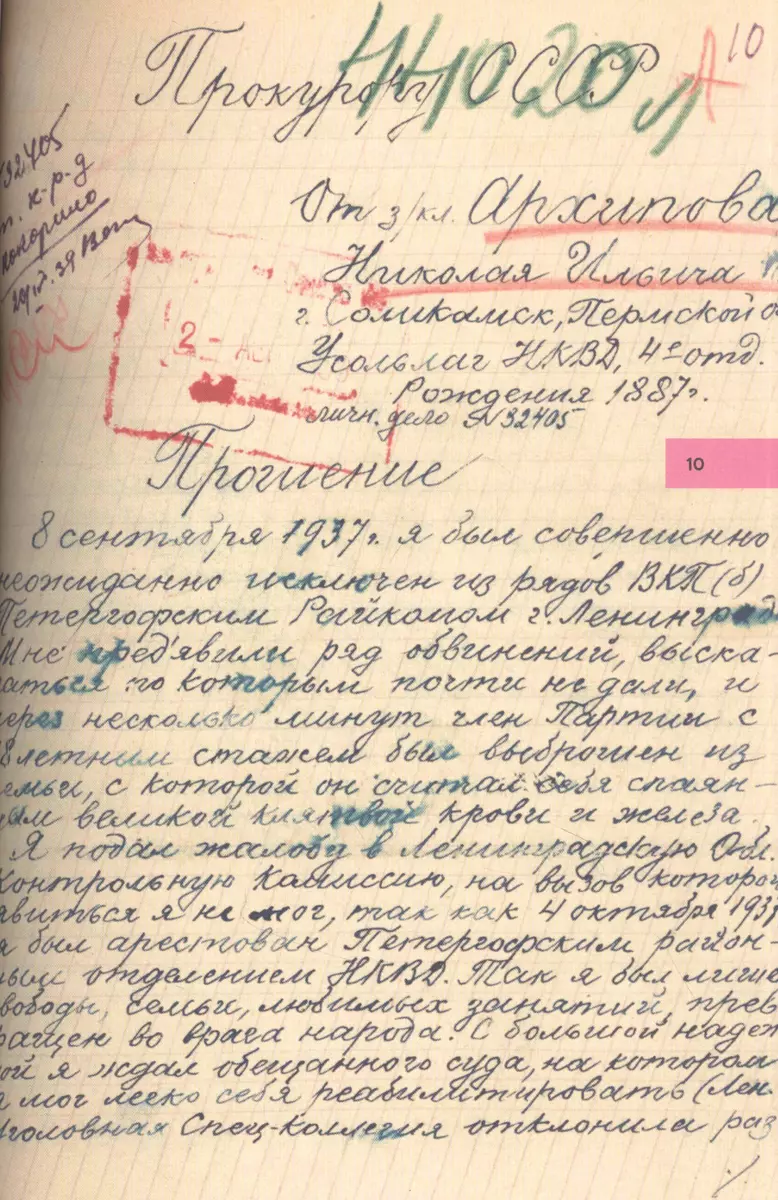 Прокурору СССР
10
От з/кл. Архипова
Николая Ильича
г. Соликамск, Пермской о
Усольлаг НКВД, 4е отд.
Рождения 1887г.
личн. дело №32405
32405
к-р-д
2-
10
Прошение
8 сентября 1937г. я был совершенно
неожиданно исключен из рядов ВКП(б)
Петергофским Райкомом г. Ленинград
Мне пред'явили ряд обвинений, выска-
заться по которым почти не дали, и
через несколько минут член Партии с
8летним стажем был выброшен из
емьи, с которой он считал себя спаян-
ым великой клятвой крови и железа.
Я подал жалобу в Ленинградскую Обл.
Контрольную Комиссию, на вызов которой
явиться я не мог, так как 4 октября 1937
я был арестован Петергофским район-
ным отделением НКВД. Так я был лише
вободы, семьи, любимых занятий, прев
ращен во врага народа. С большой надеж
ой я ждал обещанного суда, на котором
я мог легко себя реабилитировать (Лен.
Уголовная Спец-Коллегия отклонила раз